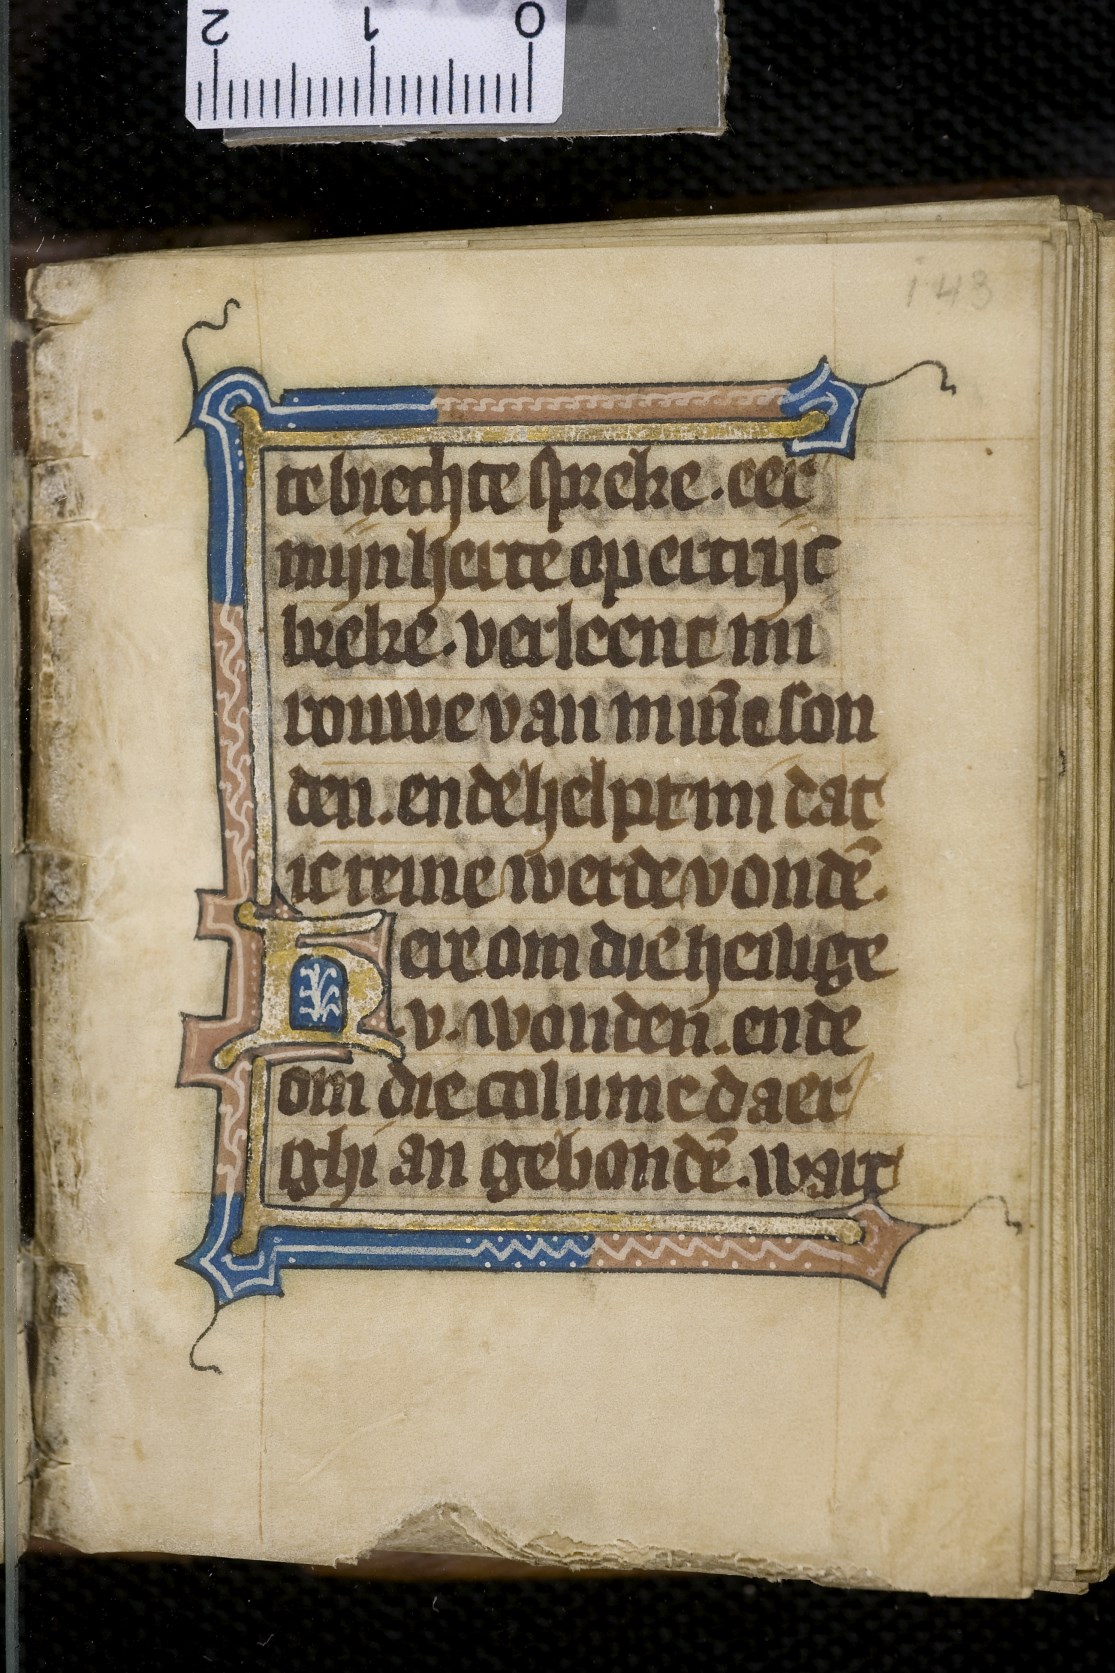 2 1 0
143
te biechte spreke . eer
mijn herte op ertrijc
breke . verleent mi
rouwe van mīne son
den . ende helpt mi dat
ic reine werde vondē .
Here om die heilige
.v. wonden . ende
om die colume daer
ghi an gebondē . wart